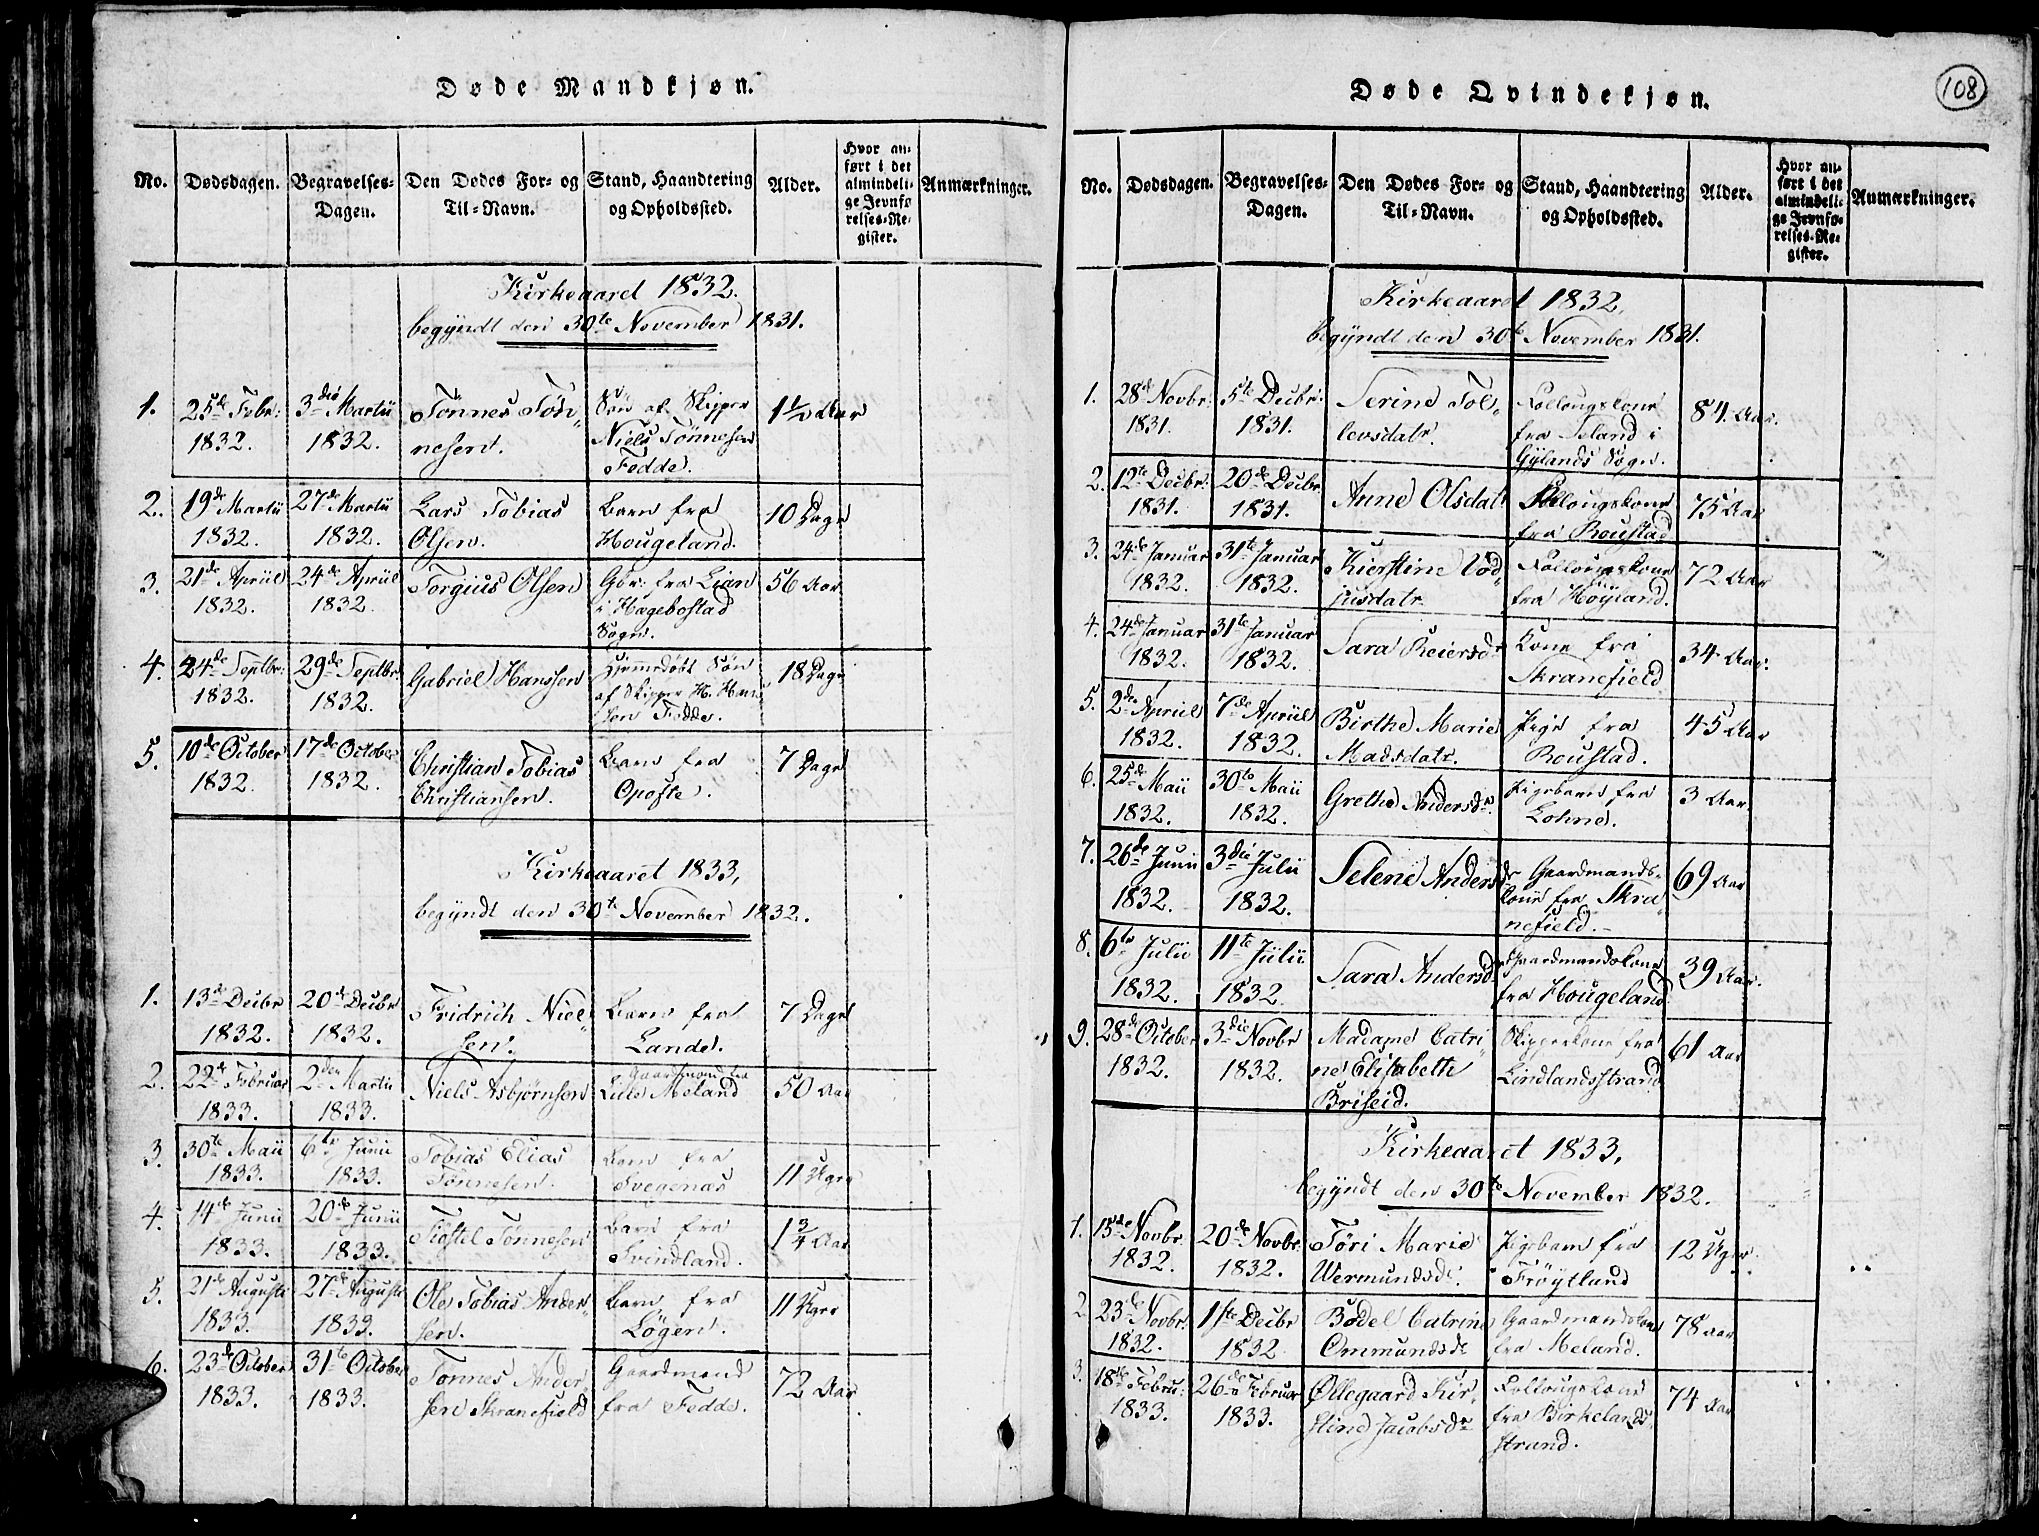 Døde Mandkjøn.
No. Dødsdagen. Begravelses-Dagen. Den Dødes For- og Til-Navn. Stand, Haandtering og Opholdssted. Alder. Hvor anført i det almindelige Jevnførelses-Register. Anmærkninger.
Kirkeaaret 1832.
begyndt den 30te November 1831.
1. 25de Febr: 1832. 3die Martii 1832. Tønnes Tønnesen. Søn af Skipper Niels Tønnesen Fedde. 1½ Aar
2. 19de Martii 1832. 27de Martii 1832. Lars Tobias Olsen. Barn fra Hougeland. 10 Dage
3. 21de Apriil 1832. 24de Apriil 1832. Torgius Olsen Gbr: fra Lian i Hægebostad Sogn. 56 Aar
4. 24de Septbr: 1832. 29de Septbr 1832. Gabriel Hanssen Hjemmedøbt Søn af Skipper H. Hanssen Fedde. 18 Dage
5. 10de October 1832. 17de October 1832. Christian Tobias Christiansen. Barn fra Opofte. 7 Dage
Kirkeaaret 1833,
begyndt den 30te November 1832.
1. 13de Decbr 1832. 20de Decbr 1832. Fridrich Nielsen. Barn fra Lande. 7 Dage
2. 22de Februar 1833. 2den Martii 1833. Niels Asbjørnsen Gaardmand fra Lille Meland 50 Aar
3. 30te Maii 1833. 6te Junii 1833. Tobias Elias Tønnesen. Barn fra Svegenæs 11 Uger
4. 14de Junii 1833. 20de Junii 1833. Tiøstel Tønnesen Barn fra Svindland. 1¾ Aar
5. 21de Augusti 1833. 27de Augusti 1833. Ole Tobias Andersen. Barn fra Løgen. 11 Uger
6. 23de October 1833. 31te October 1833. Tønnes Andersen Skranefield Gaardmand fra Fedde. 72 Aar
Døde Qvindekjøn.
108
No. Dødsdagen. Begravelses-Dagen. Den Dødes For- og Til-Navn. Stand, Haandtering og Opholdssted. Alder. Hvor anført i det almindelige Jevnførelses-Register. Anmærkninger.
Kirkeaaret 1832,
begyndt den 30te November 1831.
1. 28de Novbr: 1831. 5te Decbr: 1831. Serine Tollevsdatr. Follougskone fra Seland i Gylands Sogn. 84 Aar.
2. 12te Decbr: 1831. 20de Decbr 1831. Anne Olsdatr Follougskone fra Roustad 75 Aar
3. 24de Januar 1832. 31te Januar 1832. Kierstine Vodjusdatr. Follougskone fra Høyland. 72 Aar
4. 24de Januar 1832. 31te Januar 1832. Sara Reiersdr Kone fra Skranefield 34 Aar.
5. 2de Apriil 1832. 7de Apriil 1832. Birthe Marie Madsdatr. Pige fra Roustad. 45 Aar
6. 25de Maii 1832. 30te Maii 1832. Grethe Andersdr. Pigebarn fra Lohne. 3 Aar
7. 26de Junii 1832. 3die Julii 1832. Selene Andersdr Gaardmandskone fra Skranefield. 69 Aar
8. 6te Julii 1832. 11te Julii 1832. Sara Andersdr Gaardmandskone fra Hougeland 39 Aar.
9. 28de October 1832. 3die Novbr 1832. Madame Catrine Elisabeth Briseid. Skipperkone fra Lindlandsstrand 61 Aar
Kirkeaaret 1833,
begyndt den 30te November 1832.
1. 15de Novbr. 1832. 20de Novbr. 1832. Tøri Marie Wermundsdr. Pigebarn fra Frøytlund 12 Uger.
2. 23de Novbr. 1832. 1ste Decbr 1832 Bodel Catrine Ommundsdr Gaardmandskone fra Meland. 78 Aar
3. 18de Febru: 1833. 26de Februar 1833. Øllegaard Kirstine Jacobsdr Follougskone fra Birkelandsstrand. 74 Aar